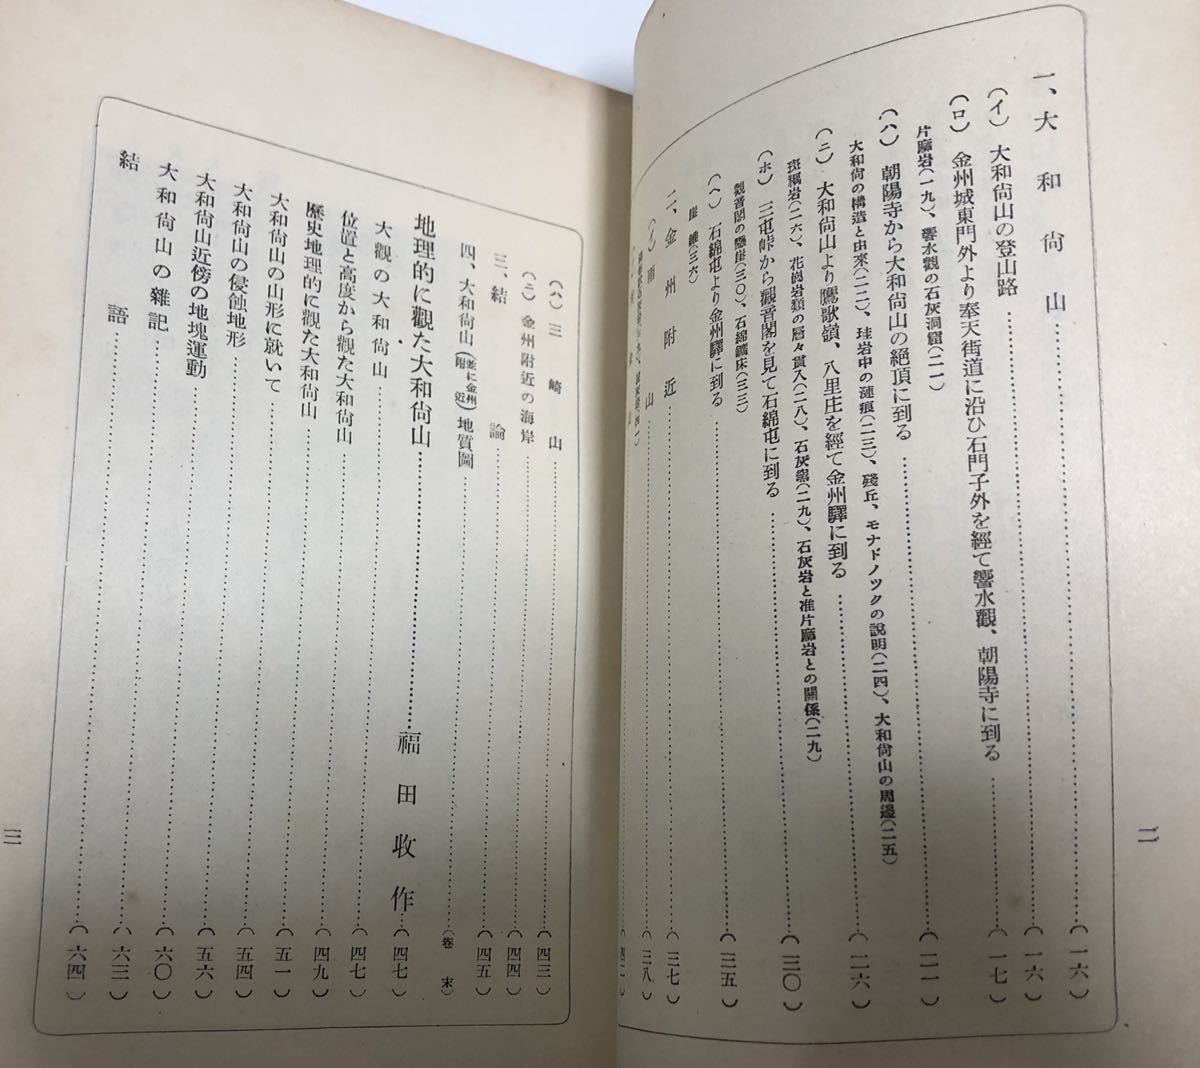 一、大和尙山…………(一六)
(イ) 大和尙山の登山路…………(一六)
(ロ) 金州城東門外より奉天街道に沿ひ石門子外を經て響水觀、朝陽寺に到る…………(一七)
片麻岩(一九)、響水觀の石灰洞窟(二一)
(ハ) 朝陽寺から大和尙山の絕頂に到る…………(二一)
大和尙の構造と由來(二二)、珪岩中の漣痕(二三)、殘丘、モナドノツクの說明(二四)、大和尙山の周邊(二五)
(ニ) 大和尙山より鷹歌嶺、八里庄を經て金州驛に到る…………(二六)
斑糲岩(二六)、花崗岩類の層々貫入(二八)、石灰窯(二九)、石灰岩と准片麻岩との關係(二九)
(ホ) 三屯峠から觀音閣を見て石綿屯に到る…………(三〇)
觀音閣の懸崖(三〇)、石綿鑛床(三三)
(ヘ) 石綿屯より金州驛に到る…………(三五)
崖錐(三六)
二、金州附近…………(三七)
(イ) 南山…………(三八)
二
(ハ) 三崎山…………(四三)
(ニ) 金州附近の海岸…………(四四)
三、結論…………(四五)
四、大和尙山(並に金州附近)地質圖…………(卷末)
地理的に觀た大和尙山…………福田收作…(四七)
大觀の大和尙山…………(四七)
位置と高度から觀た大和尙山…………(四七)
歷史地理的に觀た大和尙山…………(四九)
大和尙山の山形に就いて…………(五一)
大和尙山の侵蝕地形…………(五四)
大和尙山近傍の地塊運動…………(五六)
大和尙山の雜記…………(六〇)
結語…………(六三)
…………(六四)
三